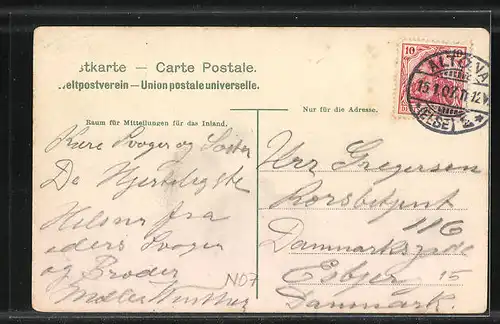 stkarte — Carte Postale.
eltpostverein — Union postale universelle.
Raum für Mitteilungen für das Inland.
Nur für die Adresse.
10
ALTONA
15.1.07. 11-12V
(ELBE)
Kære Svoger og Søster
De Hjerteligste
Hilsner fra
eders Svoger
og Broder
Winther
N07
Herr Gregersen
116
Danmarksgade
Esbjer 15
Danmark.